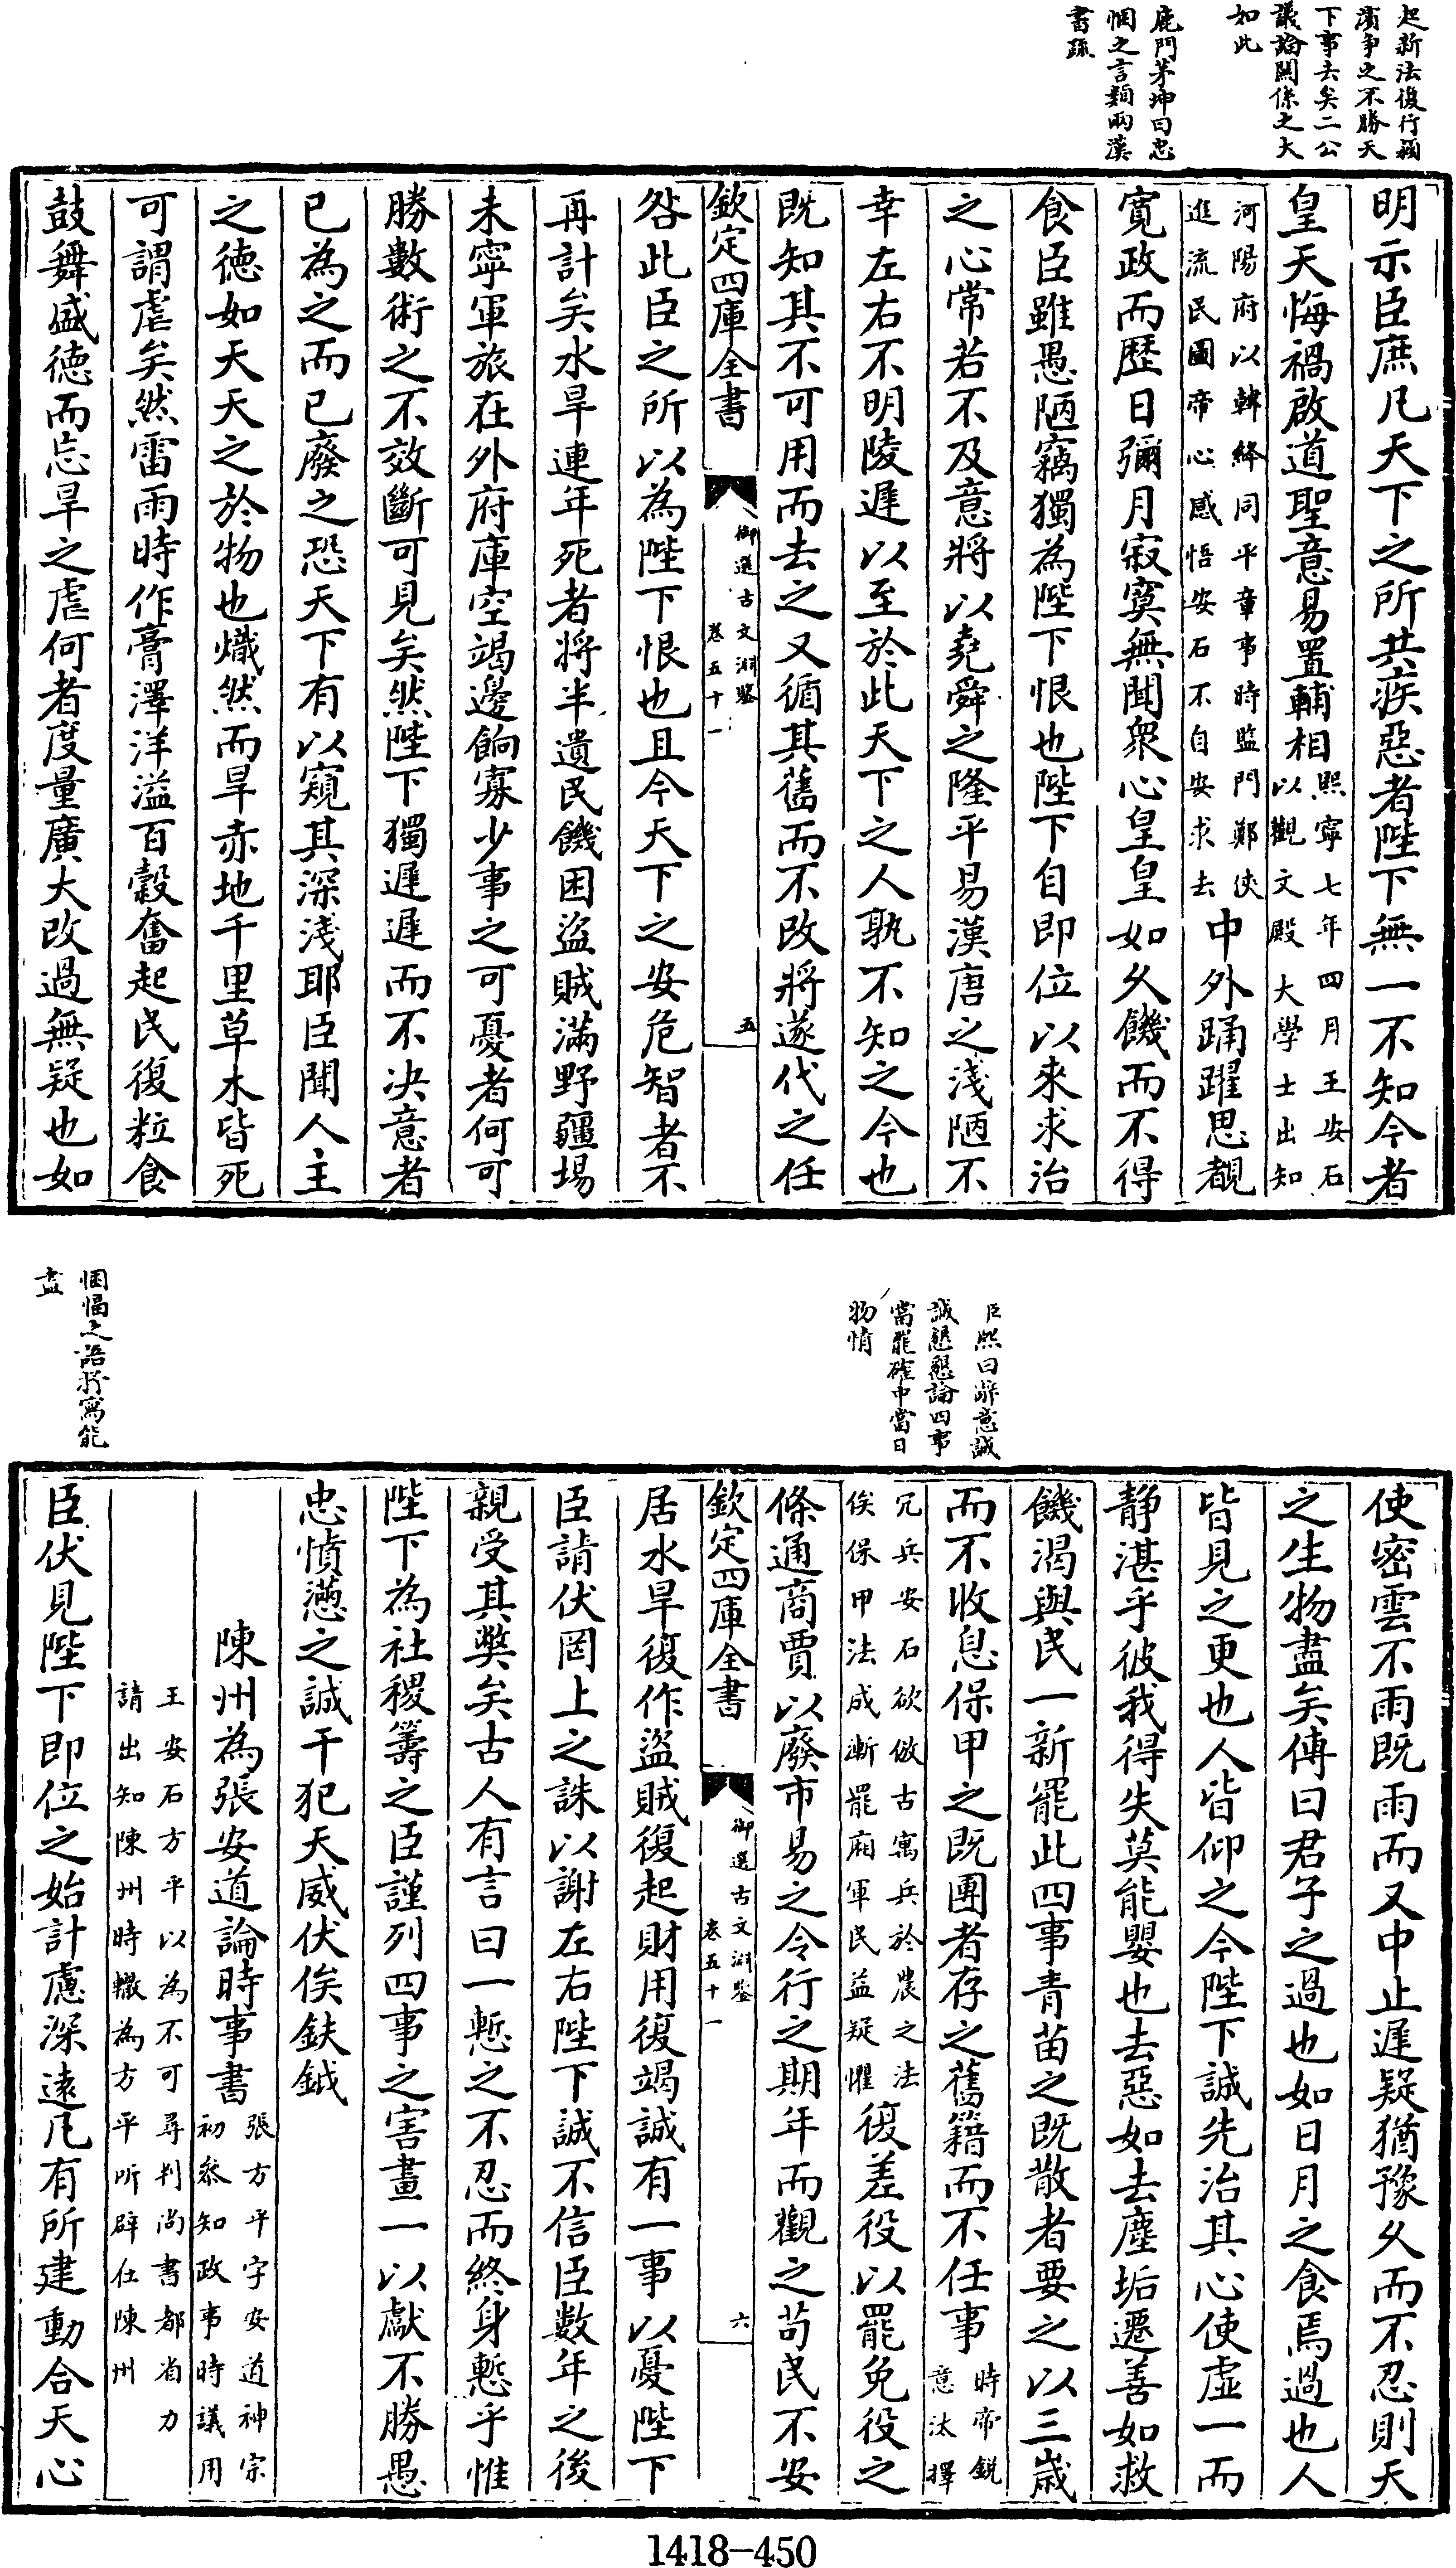 起新法復行潁
濱爭之不勝天
下事去矣二公
議論關係之大
如此
鹿門茅坤曰忠
悃之言類兩漢
書疏
明示臣庶凡天下之所共疾惡者陛下無一不知今者
皇天悔禍啟道聖意易置輔相熙寧七年四月王安石以觀文殿大學士出知
河陽府以韓絳同平章事時監門鄭俠進流民圖帝心感悟安石不自安求去中外踊躍思覩
寛政而歴日彌月寂寞無聞衆心皇皇如久饑而不得
食臣雖愚陋竊獨為陛下恨也陛下自即位以來求治
之心常若不及意將以堯舜之隆平易漢唐之淺陋不
幸左右不明陵遲以至於此天下之人孰不知之今也
既知其不可用而去之又循其舊而不改將遂代之任
欽定四庫全書
御選古文淵鑒
卷五十一
五
咎此臣之所以為陛下恨也且今天下之安危智者不
再計矣水旱連年死者將半遺民饑困盜賊滿野疆埸
未寧軍旅在外府庫空竭邊餉寡少事之可憂者何可
勝數術之不效斷可見矣然陛下獨遲遲而不決意者
已為之而已廢之恐天下有以窺其深淺耶臣聞人主
之徳如天天之於物也熾然而旱赤地千里草木皆死
可謂虐矣然雷雨時作膏澤洋溢百穀奮起民復粒食
鼓舞盛徳而忘旱之虐何者度量廣大改過無疑也如
臣熙曰辭意誠
誠懇懇論四事
當罷確中當日
物情
悃愊之語抒寫能
盡
使密雲不雨既雨而又中止遲疑猶豫久而不忍則天
之生物盡矣傳曰君子之過也如日月之食焉過也人
皆見之更也人皆仰之今陛下誠先治其心使虛一而
靜湛乎彼我得失莫能嬰也去惡如去塵垢遷善如救
饑渴與民一新罷此四事青苗之既散者要之以三歲
而不收息保甲之既團者存之舊籍而不任事時帝鋭意汰擇
冗兵安石欲倣古寓兵於農之法俟保甲法成漸罷廂軍民益疑懼復差役以罷免役之
條通商賈以廢市易之令行之期年而觀之苟民不安
欽定四庫全書
御選古文淵鑒
卷五十一
六
居水旱復作盜賊復起財用復竭誠有一事以憂陛下
臣請伏罔上之誅以謝左右陛下誠不信臣數年之後
親受其弊矣古人有言曰一慙之不忍而終身慙乎惟
陛下為社稷籌之臣謹列四事之害畫一以獻不勝愚
忠憤懣之誠干犯天威伏俟鈇鉞
陳州為張安道論時事書張方平字安道神宗初參知政事時議用
王安石方平以為不可尋判尚書都省力請出知陳州時轍為方平所辟仕陳州
臣伏見陛下即位之始計慮深遠凡有所建動合天心
1418-450